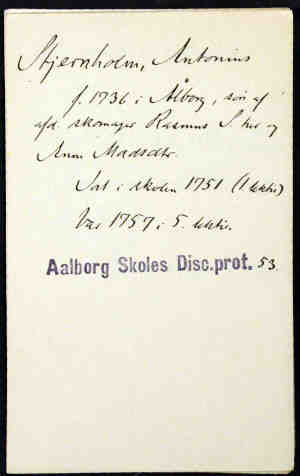 Stjernholm, Antonius
f. 1736 i Ålborg, søn af
afd. skomager Rasmus S. her og
Anna Madsdtr.
Sat i skolen 1751 (1 lektie)
Var 1757 i 5. lektie.
Aalborg Skoles Disc.prot. 53